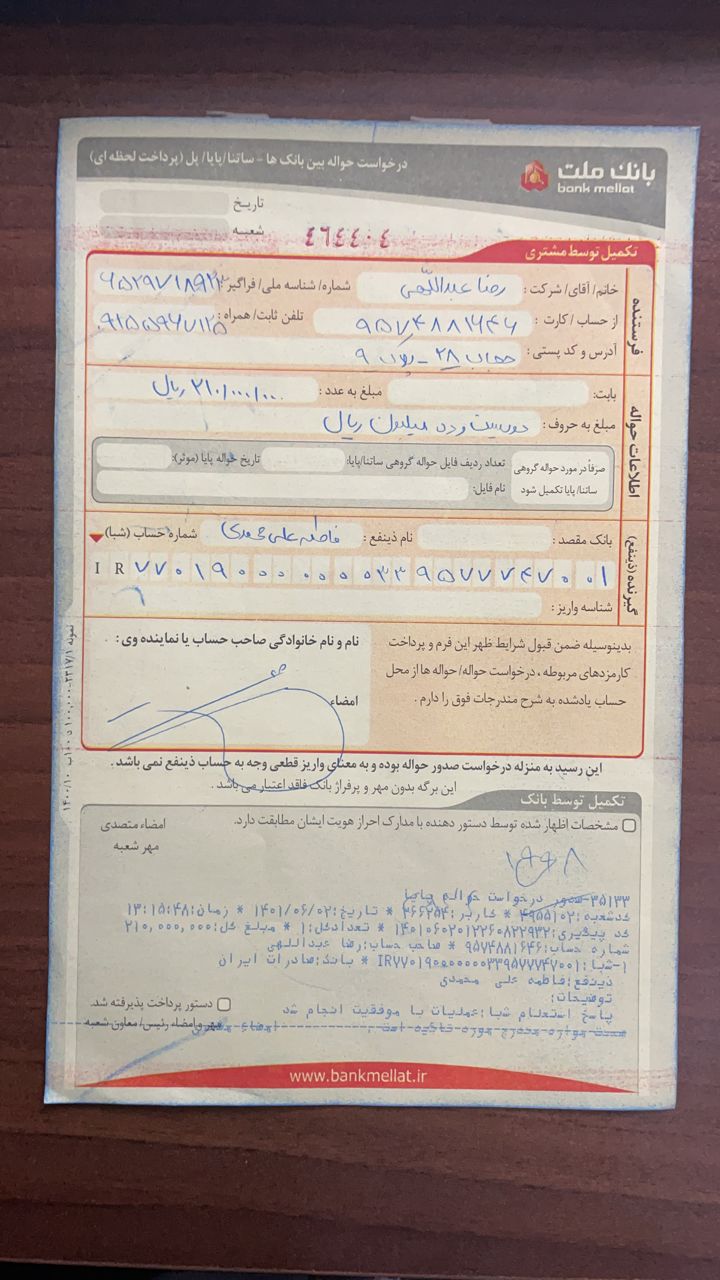 بانک ملت
bank mellat
درخواست حواله بین بانک ها - ساتنا/پایا/ پل (پرداخت لحظه ای)
تاریخ
شعبه
۴۶۴۴۰۴
تکمیل توسط مشتری
فرستنده
خانم/ آقای/ شرکت : رضا عبداللهی شماره/ شناسه ملی/ فراگیر :
از حساب / کارت : ۹۵۷۴۸۸۱۶۴۶ تلفن ثابت/ همراه :
آدرس و کد پستی : حجاب ۲۸ - پلاک ۹
اطلاعات حواله
بابت: مبلغ به عدد : ۲۱۰/۰۰۰/۰۰۰ ریال
مبلغ به حروف : دویست و ده میلیون ریال
صرفاً در مورد حواله گروهی ساتنا/ پایا تکمیل شود
تعداد ردیف فایل حواله گروهی ساتنا/پایا: تاریخ حواله پایا (موثر):
نام فایل:
گیرنده (ذینفع)
بانک مقصد : نام ذینفع : فاطمه علی محمدی شماره حساب (شبا)
IR ۷۷۰۱۹۰۰۰۰۰۰۰۳۳۹۵۷۷۷۴۷۰۰۱
شناسه واریز :
بدینوسیله ضمن قبول شرایط ظهر این فرم و پرداخت
کارمزدهای مربوطه ، درخواست حواله/ حواله ها از محل
حساب یادشده به شرح مندرجات فوق را دارم .
نام و نام خانوادگی صاحب حساب یا نماینده وی :
امضاء
این رسید به منزله درخواست صدور حواله بوده و به معنای واریز قطعی وجه به حساب ذینفع نمی باشد .
این برگه بدون مهر و پرفراژ بانک فاقد اعتبار می باشد .
تکمیل توسط بانک
مشخصات اظهار شده توسط دستور دهنده با مدارک احراز هویت ایشان مطابقت دارد.
امضاء متصدی
مهر شعبه
۳۵۱۳۳-صدور درخواست حواله پایا
کدشعبه:۴۹۵۵۱۰۲ * کاربر:۳۶۶۲۵۴ * تاریخ:۱۴۰۱/۰۶/۰۲ * زمان:۱۳:۱۵:۴۸
کد پیگیری:۱۴۰۱۰۶۰۲۰۱۲۲۶۰۸۲۲۹۳۲ * تعدادکل:۱ * مبلغ کل:۲۱۰,۰۰۰,۰۰۰
شماره حساب:۹۵۷۴۸۸۱۶۴۶ * صاحب حساب:رضا عبداللهی
۱-شبا:IR۷۷۰۱۹۰۰۰۰۰۰۰۳۳۹۵۷۷۷۴۷۰۰۱ * بانک:صادرات ایران
ذینفع:فاطمه علی محمدی
توضیحات:
پاسخ استعلام شبا:عملیات با موفقیت انجام شد
دستور پرداخت پذیرفته شد.
مهر و امضاء رئیس/ معاون شعبه
www.bankmellat.ir